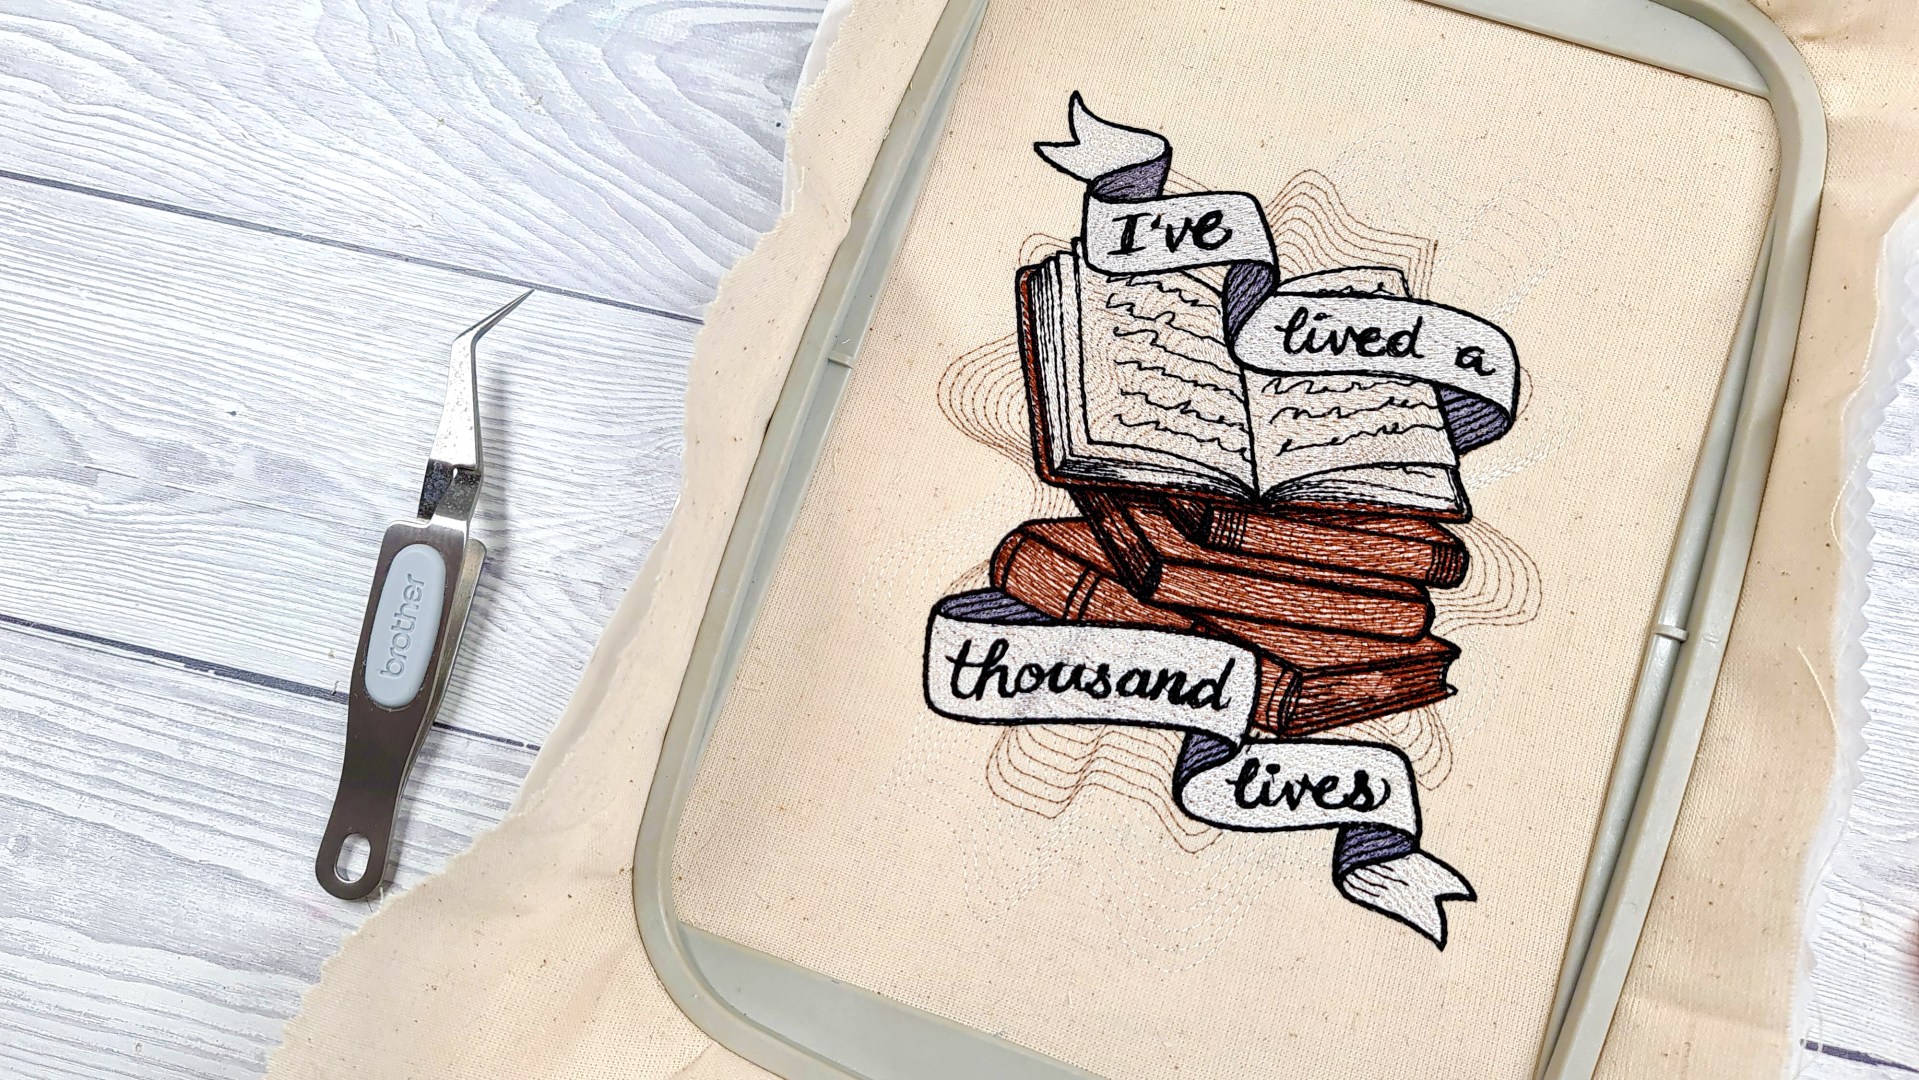 I've
lived a
thousand
lives
brother